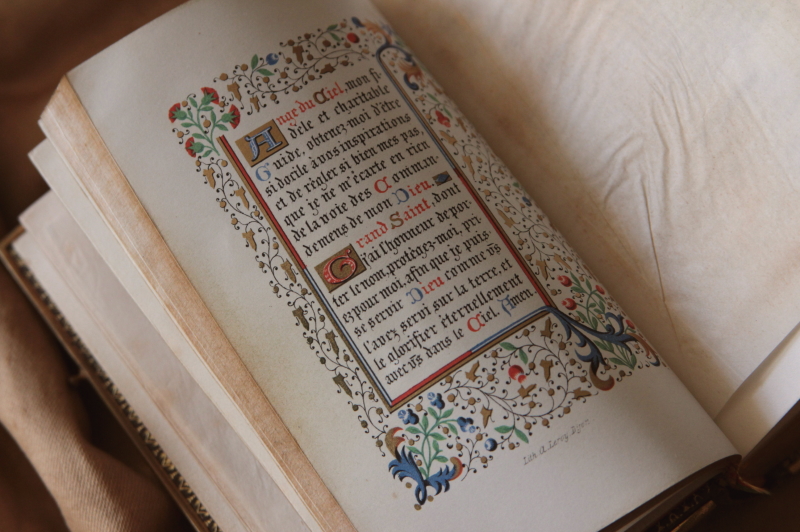 Ange du Ciel, mon fi
dèle et charitable
Guide, obtenez-moi d'être
si docile à vos inspirations
et de règler si bien mes pas,
que je ne m'écarte en rien
de la voie des Comman-
demens de mon Dieu.
Grand Saint, dont
j'ai l'honneur de por-
ter le nom, protégez-moi, pri
ez pour moi, afin que je puis-
se servir Dieu comme v̄s
l'avez servi sur la terre, et
le glorifier éternellement
avec v̄s dans le Ciel. Amen
Lith. A. Leroy Dijon